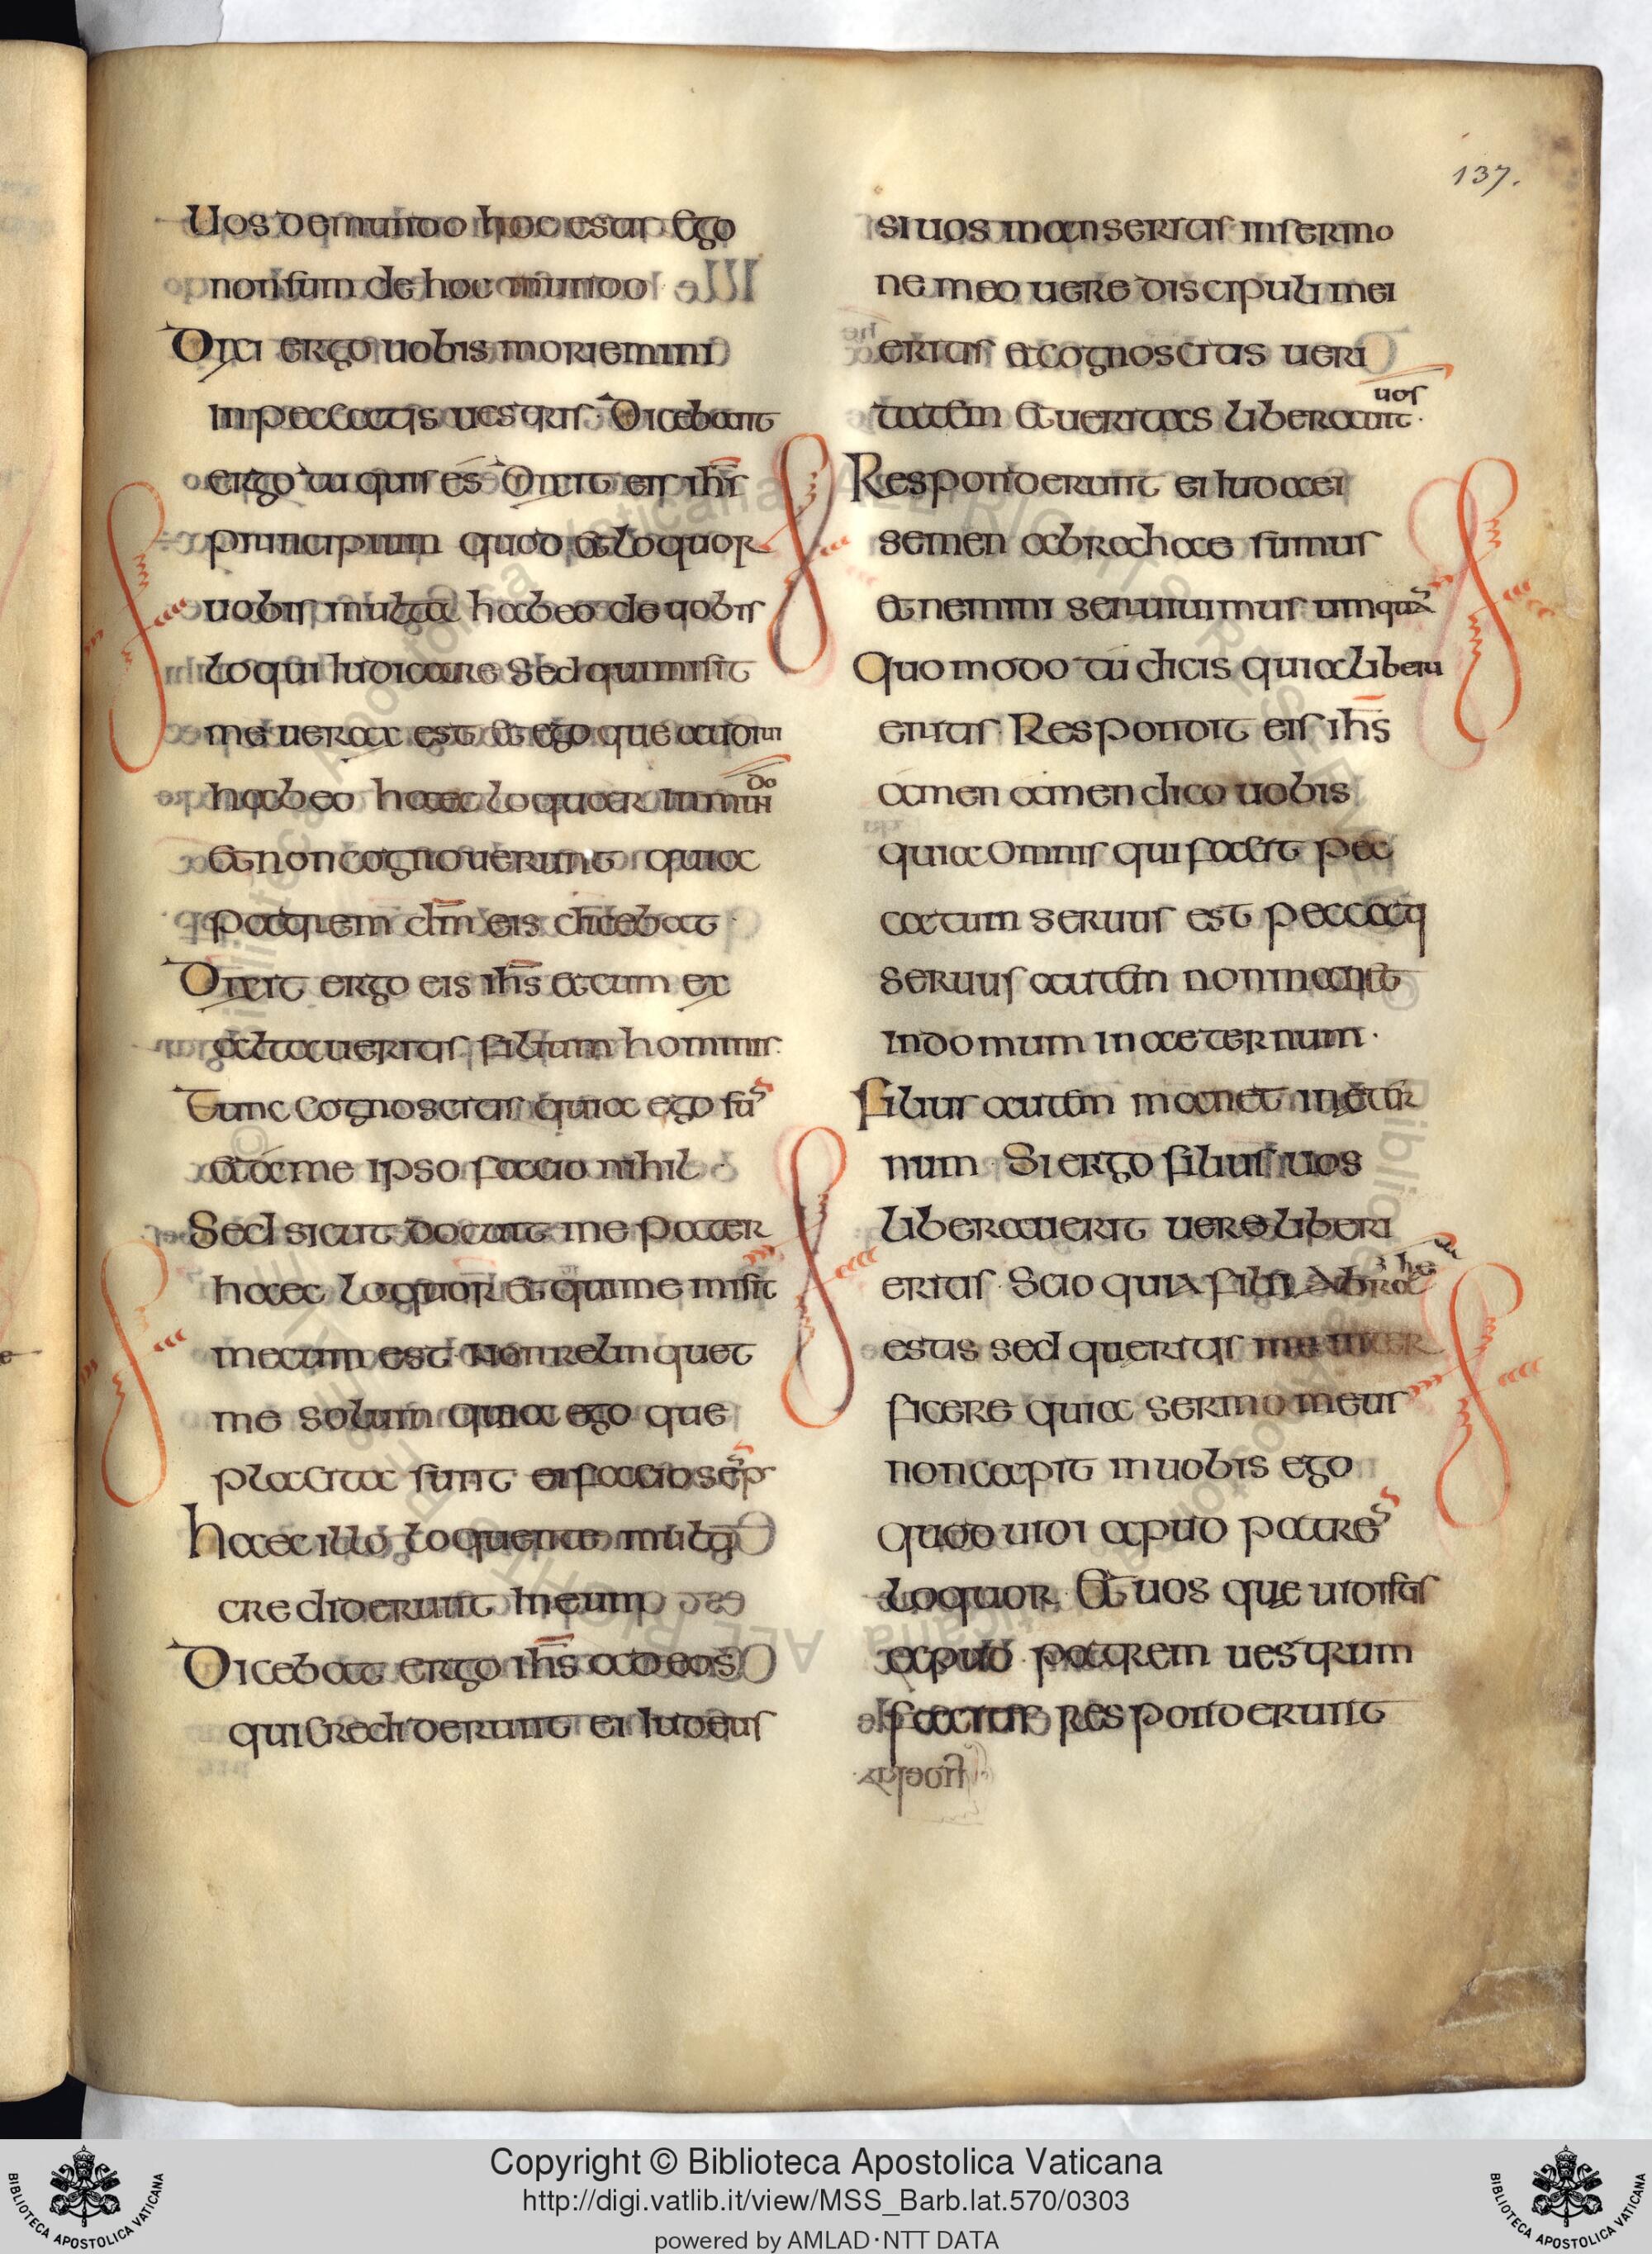 137.
Uos de mundo hoc estis Ego
non sum de hoc mundo
Dixi ergo uobis moriemini
in peccatis uestris · Dicebant
ergo tu quis es Dixit eis ihs̄
principium quod et loquor
uobis multa habeo de uobis
loqui iudicare Sed qui misit
me uerax est et ego que audiui
habeo haec loquar in mun
do
et non cognouerunt quia
patrem dm̄ eis dicebat ·
Dixit ergo eis ihs̄ et cum ex
altaueritis filium hominis ·
Tunc cognoscitis quia ego sū
et a me ipso facio nihil ·
Sed sicut docuit me pater
haec loquor et qui me misit
mecum est non relinquet
me solum quia ego que
placita sunt ei facio sēp
haec illo loquente multi
crediderunt in eum
Dicebat ergo ihs̄ ad eos
qui crediderunt ei iudeus
si uos manseritis in sermo
ne meo uere discipuli mei
eritis et cognoscitis ueri
uos
tatem et ueritas liberauit ·
Responderunt ei iudaei
semen abrachae sumus
et nemini seruiuimus umquā
Quo modo tu dicis quia liberi
eritis · Respondit eis ihs̄
amen amen dico uobis
quia omnis qui facit pec
catum seruus est peccati
seruus autem non manet
in domum in aeternum ·
filius autem manet in etir
num · Si ergo filius uos
liberauerit uere liberi
eritis · Scio quia filii Abra
he
estis sed queritis me inter
ficere quia sermo meus
non capit in uobis ego
quod uidi aput patrē
loquor · Et uos que uidistis
aput patrem uestrum
facitis responderunt
Copyright © Biblioteca Apostolica Vaticana
http://digi.vatlib.it/view/MSS_Barb.lat.570/0303
powered by AMLAD·NTT DATA
BIBLIOTECA APOSTOLICA VATICANA
BIBLIOTECA APOSTOLICA VATICANA